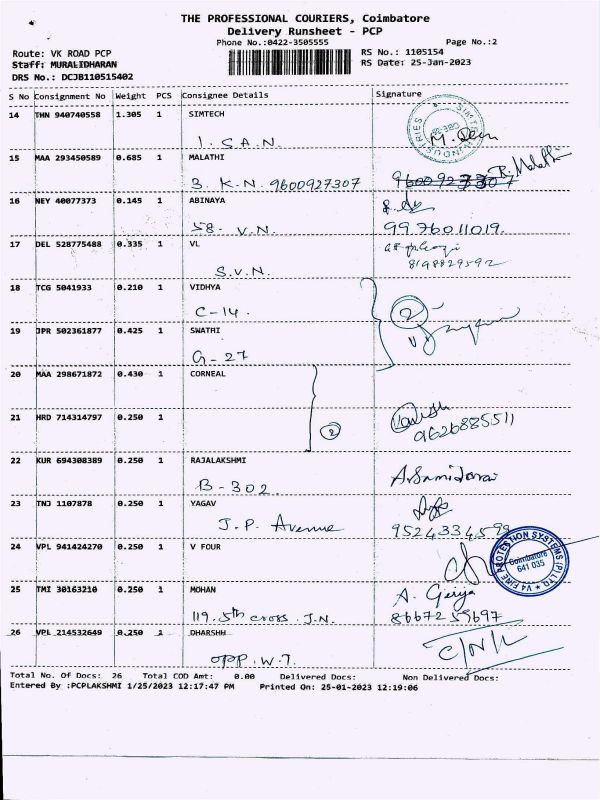 THE PROFESSIONAL COURIERS, Coimbatore
Delivery Runsheet - PCP
Phone No.:0422-3505555 Page No.:2
Route: VK ROAD PCP RS No.: 1105154
Staff: MURALIDHARAN RS Date: 25-Jan-2023
DRS No.: DCJB110515402
S No Consignment No Weight PCS Consignee Details Signature
14 THN 940740558 1.305 1 SIMTECH
1. S.A.N.
15 MAA 293450589 0.685 1 MALATHI R. Malathi
3. K.N. 9600927307 9600927307
16 NEY 40077373 0.145 1 ABINAYA
58. V.N. 9976011019.
17 DEL 528775488 0.335 1 VL
S.V.N. 8198829592
18 TCG 5041933 0.210 1 VIDHYA
C-14. 2
19 JPR 502361877 0.425 1 SWATHI
G-27
20 MAA 298671872 0.430 1 CORNEAL
21 HRD 714314797 0.250 1
2 9626885511
22 KUR 694308389 0.250 1 RAJALAKSHMI
B-302
23 TNJ 1107878 0.250 1 YAGAV
J.P. Avenue
24 VPL 941424270 0.250 1 V FOUR
V4 FIRE PROTECTION SYSTEMS (P) LTD
Coimbatore
641 035
25 TMI 30163210 0.250 1 MOHAN
119. 5th cross. J.N. 8667259697
26 VPL 214532649 0.250 1 DHARSHH
OPP. W.T.
Total No. Of Docs: 26 Total COD Amt: 0.00 Delivered Docs: Non Delivered Docs:
Entered By :PCPLAKSHMI 1/25/2023 12:17:47 PM Printed On: 25-01-2023 12:19:06